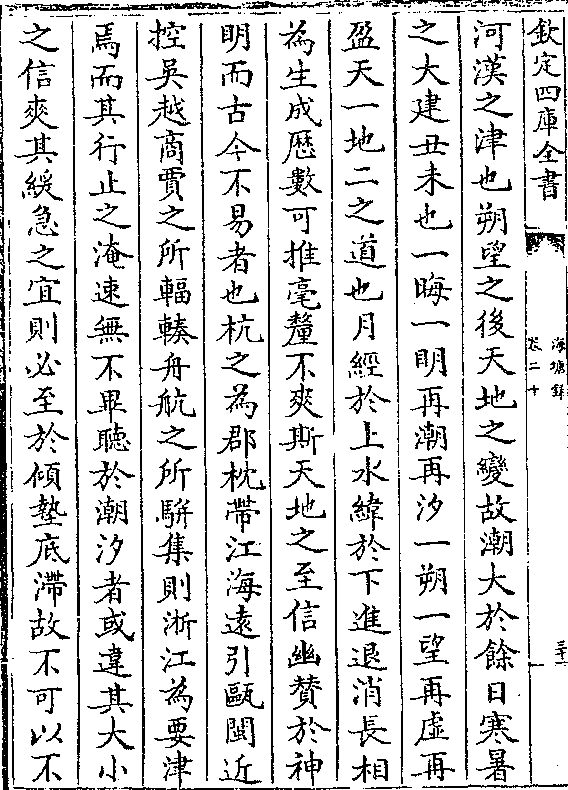 欽定四庫全書
海塘錄
卷二十
河漢之津也朔望之後天地之變故潮大於餘日寒暑
之大建丑未也一晦一明再潮再汐一朔一望再虛再
盈天一地二之道也月經於上水緯於下進退消長相
為生成厯數可推毫釐不爽斯天地之至信幽贊於神
明而古今不易者也杭之為郡枕帶江海遠引甌閩近
控吳越商賈之所輻輳舟航之所駢集則浙江為要津
焉而其行止之淹速無不畢聽於潮汐者或違其大小
之信爽其緩急之宜則必至於傾墊底滯故不可以不